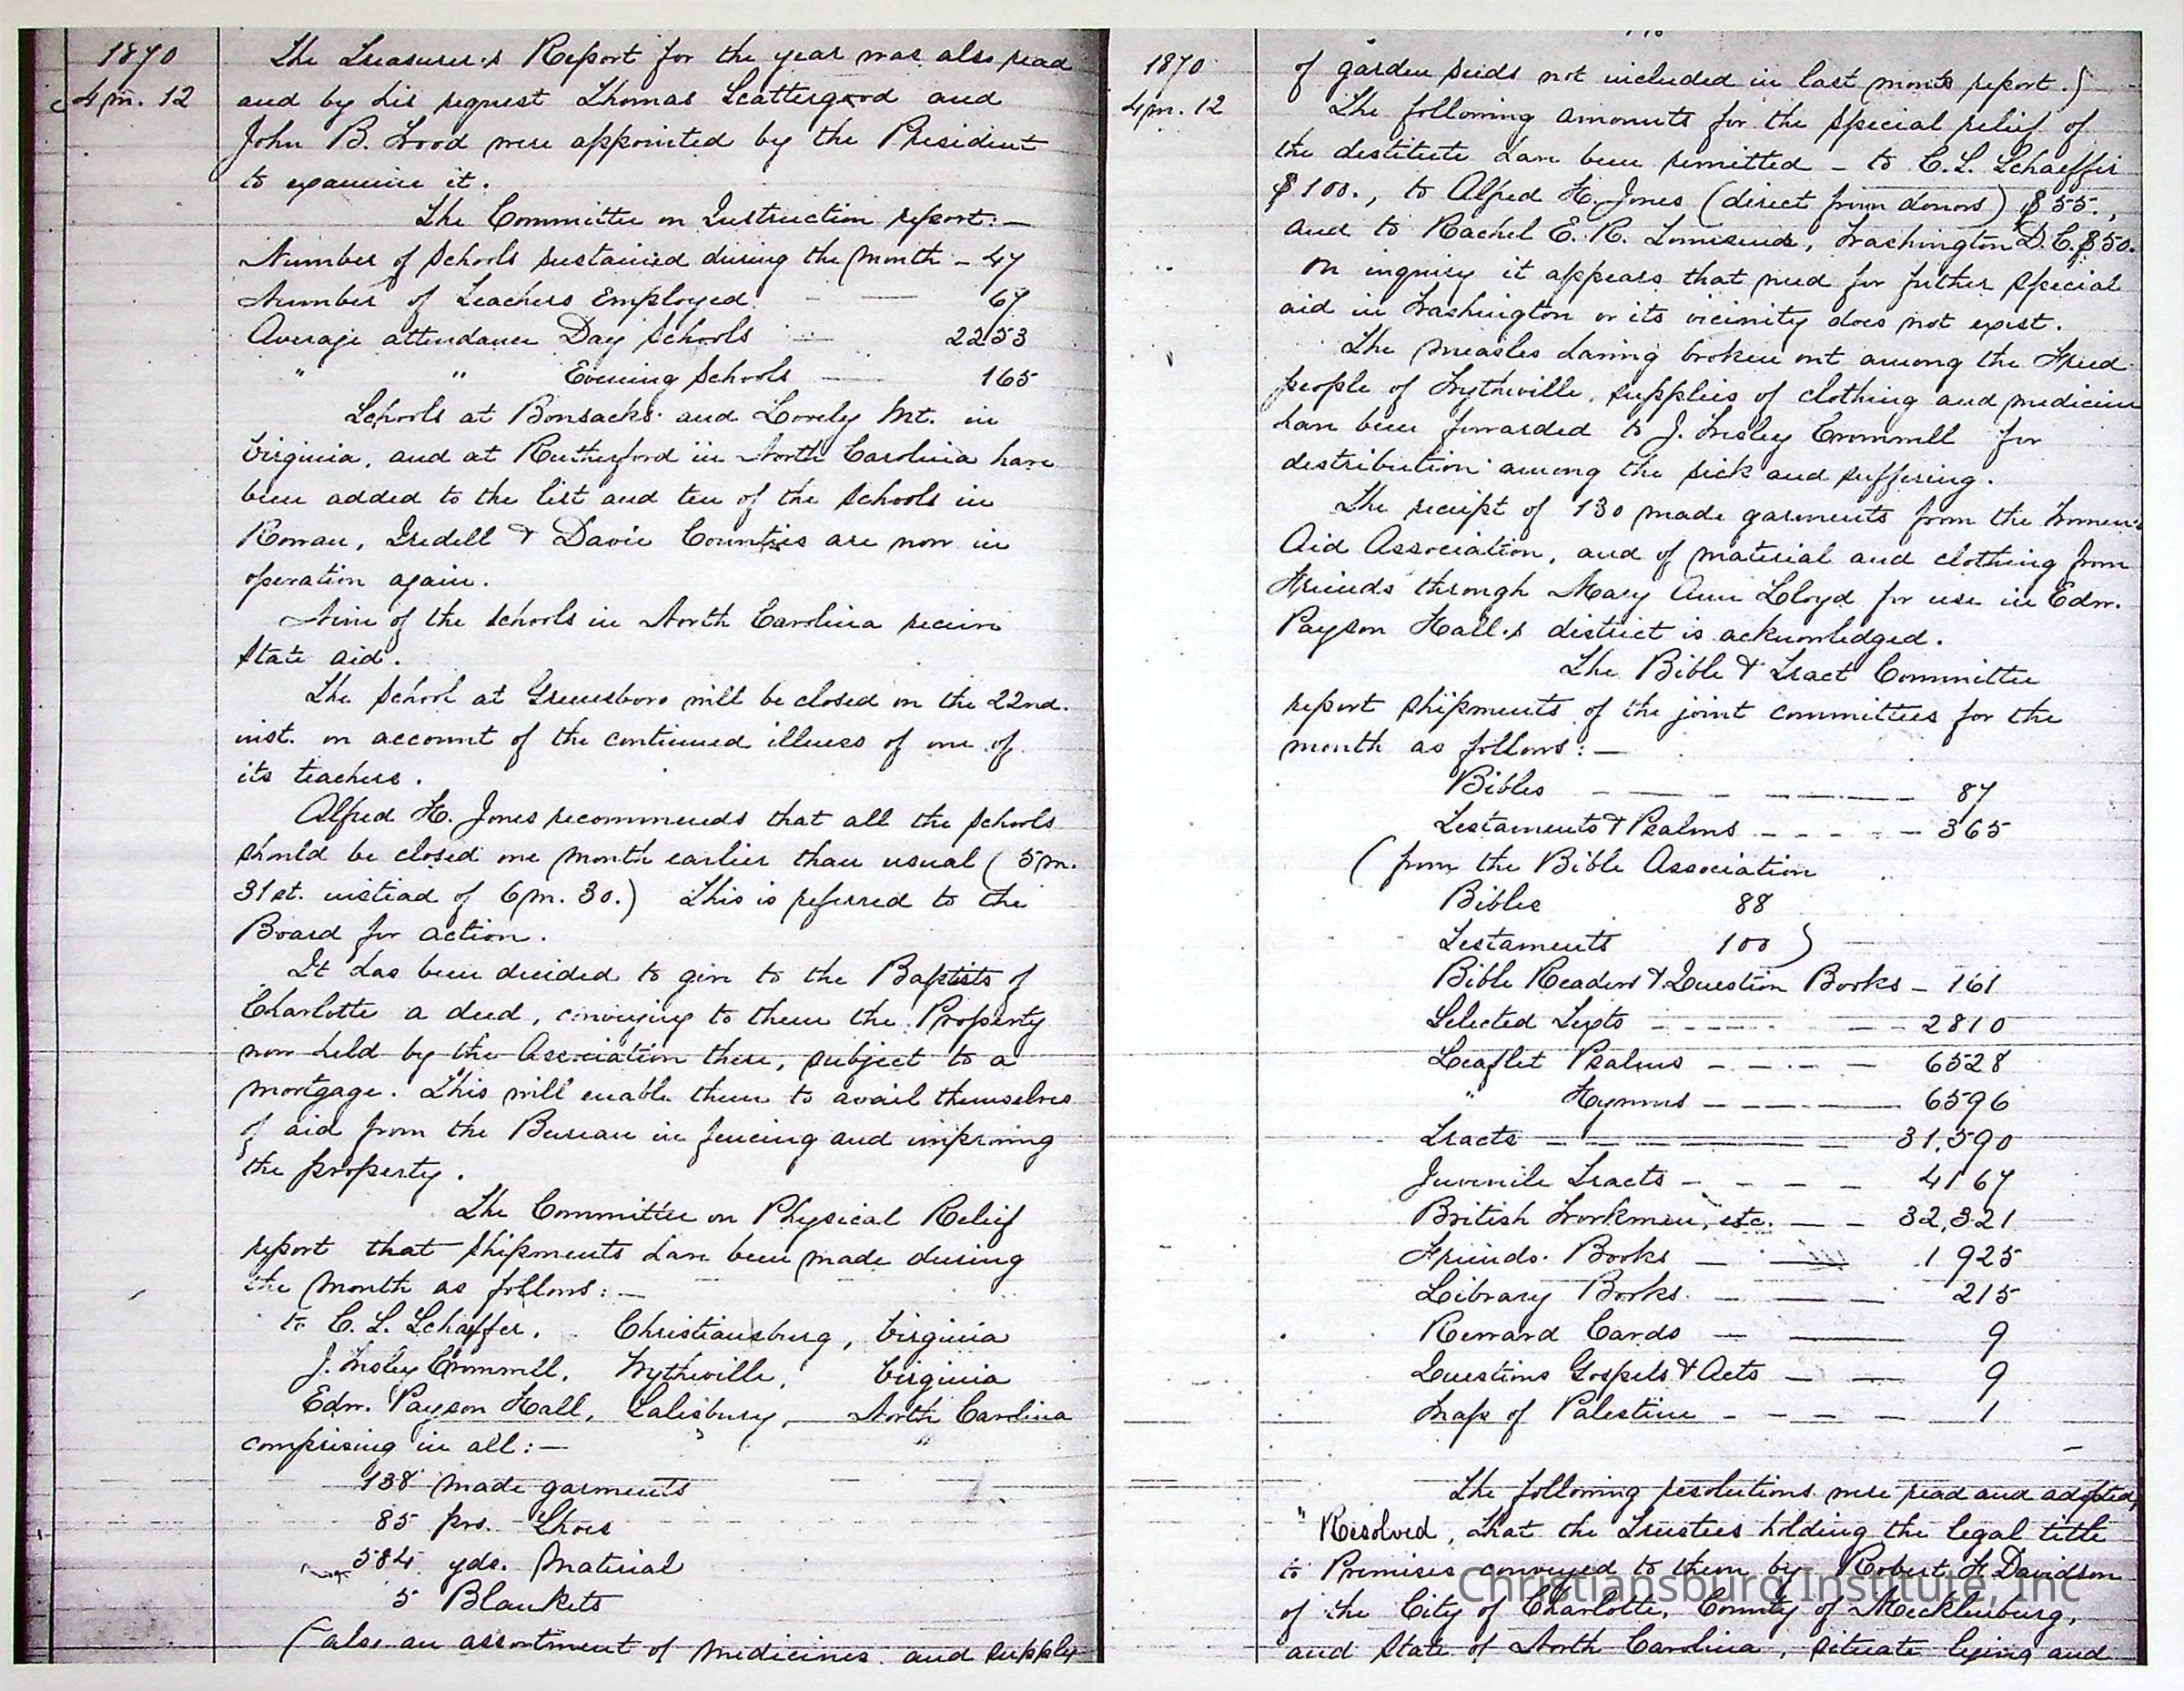 1870
4 m. 12
The Treasurer's Report for the year was also read
and by his request Thomas Scattergood and
John B. Wood were appointed by the President
to examine it.
The Committee on Instruction report:—
Number of Schools sustained during the month - 47
Number of Teachers Employed - — 67
Average attendance Day Schools — 2253
" " Evening Schools — 165
Schools at Bonsacks and Lovely Mt. in
Virginia, and at Rutherford in North Carolina have
been added to the list and ten of the schools in
Rowan, Iredell & Davie Counties are now in
operation again.
Nine of the schools in North Carolina receive
State aid.
The School at Greensboro will be closed on the 22nd.
inst. on account of the continued illness of one of
its teachers.
Alfred H. Jones recommends that all the schools
should be closed one month earlier than usual (5 m.
31st. instead of 6 m. 30.) This is referred to the
Board for action.
It has been decided to give to the Baptists of
Charlotte a deed, conveying to them the Property
now held by the Association there, subject to a
mortgage. This will enable them to avail themselves
of aid from the Bureau in fencing and improving
the property.
The Committee on Physical Relief
report that shipments have been made during
the month as follows:—
to C. L. Schaffer, Christiansburg, Virginia
J. Insley Crommell, Wytheville, Virginia
Edw. Payson Hall, Salisbury, North Carolina
comprising in all:— "
138 made garments
85 prs. Shoes
584 yds. Material
5 Blankets
(also an assortment of medicines and supply
1870
4 m. 12
of garden seeds not included in last months report.)
The following amounts for the special relief of
the destitute have been remitted - to C. L. Schaeffer
$100., to Alfred H. Jones (direct from donors) $55.,
and to Rachel E. R. Townsend, Washington D.C. $50.
On inquiry it appears that need for futher special
aid in Washington or its vicinity does not exist.
The measles having broken out among the Freed
people of Wytheville, supplies of clothing and medicine
have been forwarded to J. Insley Crommell for
distribution among the sick and suffering.
The receipt of 130 made garments from the Women's
Aid Association, and of material and clothing from
Friends through Mary Ann Lloyd for use in Edw.
Payson Hall's district is acknowledged.
The Bible & Tract Committee
report shipments of the joint committees for the
month as follows:—
Bibles — 87
Testaments & Psalms — 365
(from the Bible Association
Bibles 88
Testaments 100)
Bible Readers & Question Books — 161
Selected Texts — 2810
Leaflet Psalms — 6528
" Hymns — 6596
Tracts — 31,590
Juvenile Tracts — 4167
British Workmen, etc. — 32,321
Friends Books — 1925
Library Books — 215
Reward Cards — 9
Questions Gospels & Acts — 9
Map of Palestine — 1
The following resolutions were read and adopted,
"Resolved, that the Trustees holding the legal title
to Premises conveyed to them by Robert H Davidson
of the City of Charlotte, County of Mecklenburg,
and State of North Carolina, situate lying and
Christiansburg Institute, Inc